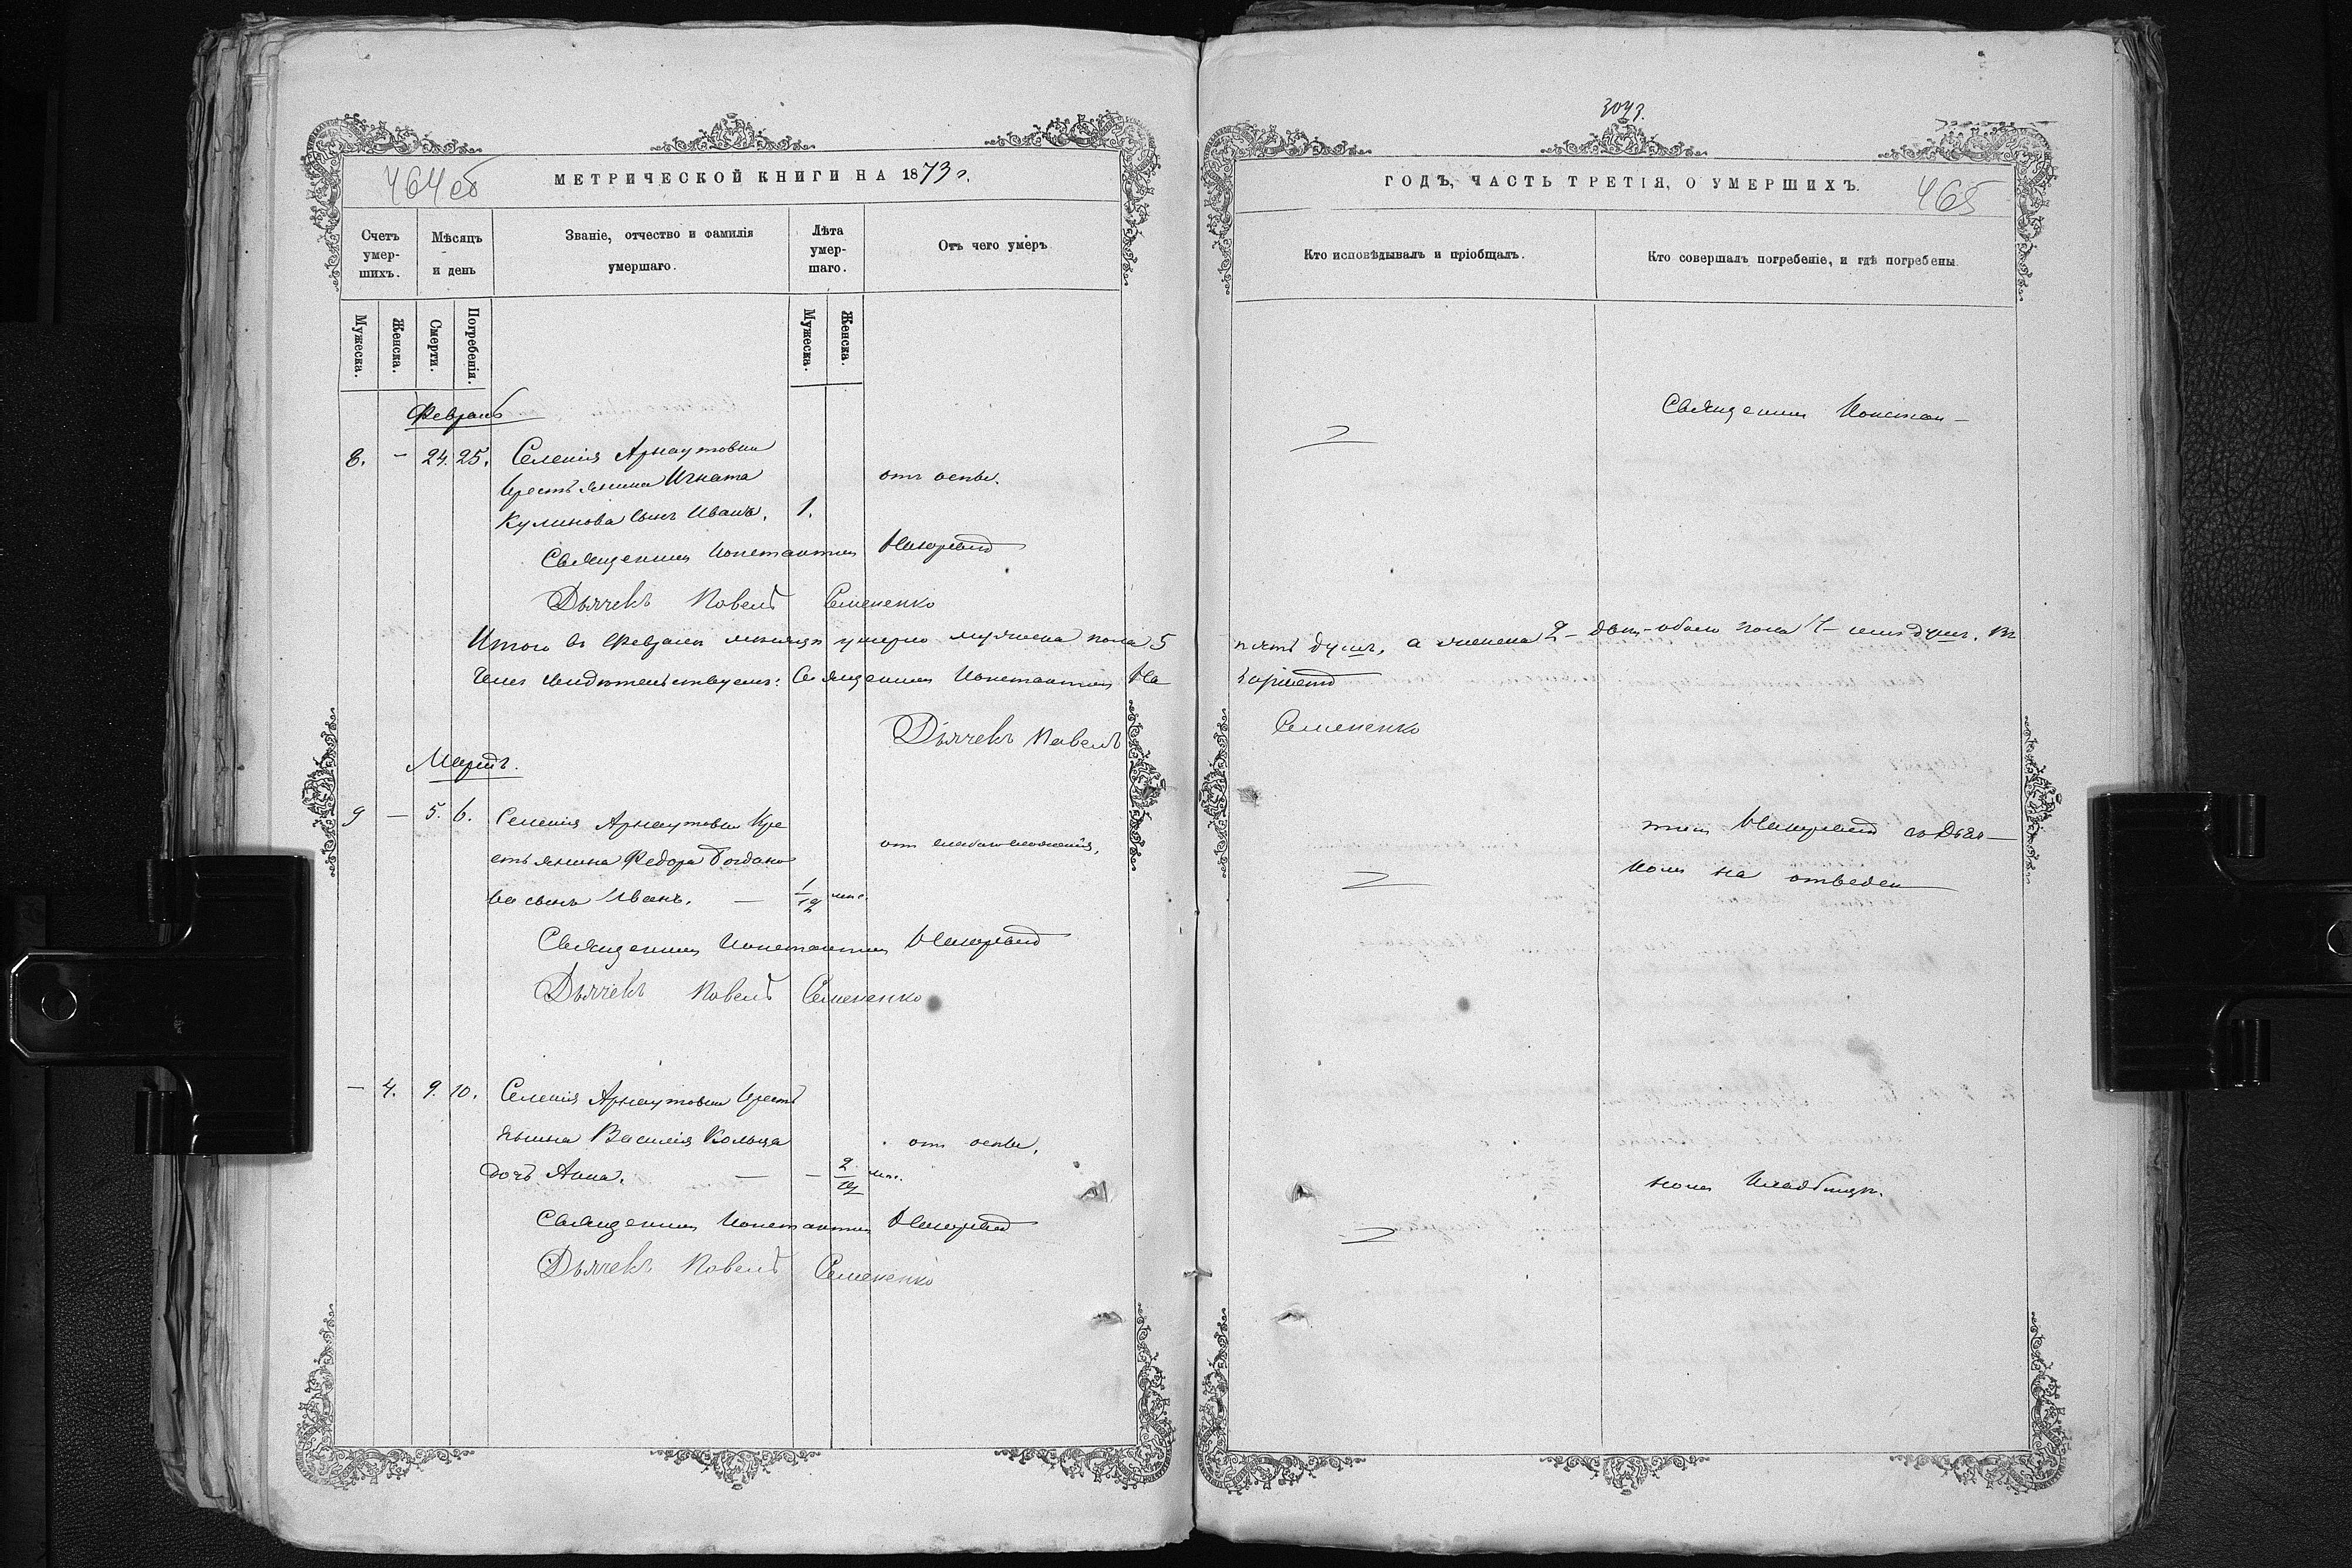 464об
МЕТРИЧЕСКОЙ КНИГИ НА 1873 г.
Счетъ умер-
шихъ.
Мѣсяцъ
и день
Званіе, отчество и фамилія
умершаго.
Лѣта
умер-
шаго.
Отъ чего умеръ
Мужеска.
Женска.
Смерти.
Погребенія.
Мужеска.
Женска.
Февраль
8. – 24. 25. Селенія Арнаутовки
Крестьянина Игната
Куликова сынъ Иванъ. 1. отъ оспы.
Священникъ Константин
Дьячекъ Павелъ Семененко
Итого въ Февралѣ месяцѣ умерло мужеска пола 5
чемъ свидѣтельствуемъ: Священникъ Константинъ
Дьячекъ Павелъ
Мартъ.
9 – 5. 6. Селенія Арнаутовки Кре
стьянина Федора Богдано
ва сынъ Иванъ. – 1/12 мѣс. от
Священникъ Константин
Дьячекъ Павелъ Семененко
– 4. 9. 10. Селенія Арнаутовки Кресть
янина Василія Кольца
дочь Анна. – – 2/12 мѣс. отъ оспы.
Священникъ Константин
Дьячекъ Павелъ Семененко
3073.
ГОДЪ, ЧАСТЬ ТРЕТІЯ, О УМЕРШИХЪ.
465
Кто исповѣдывалъ и пріобщалъ.
Кто совершалъ погребеніе, и гдѣ погребены
Священникъ Констан–
пять душъ, а женска 2 – двѣ – обоего пола 7 – семь душъ. Въ
Семененко
тин съ Дьяч–
комъ на отведен
номъ Кладбищѣ.